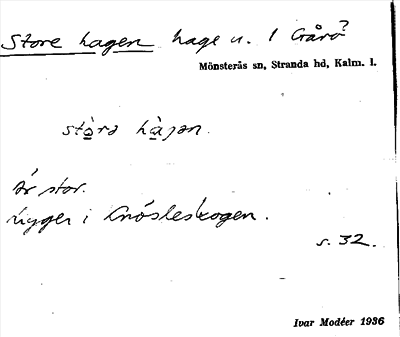 Store hagen hage u. 1 Gårö?
Mönsterås sn, Stranda hd, Kalm. l.
stòrə hàɡən.
Är stor.
Ligger i
s. 32.
Ivar Modéer 1936